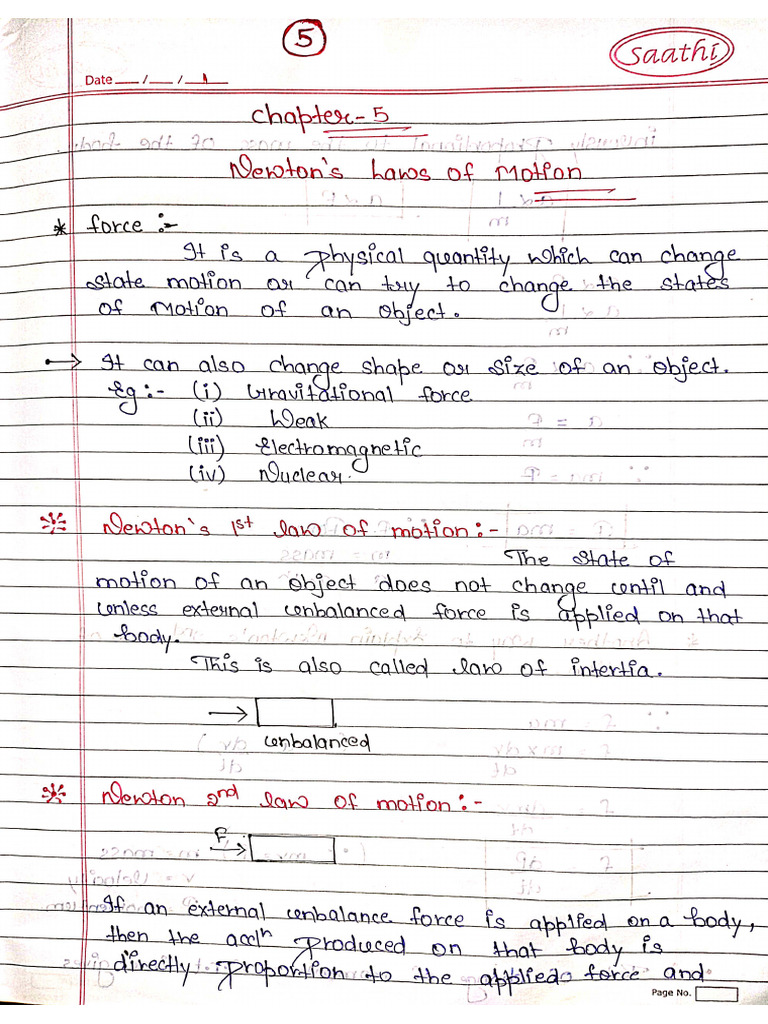 5
saathi
Date __/__/__
Chapter-5
Newton's Laws of Motion
* force :-
It is a physical quantity which can change
state motion or can try to change the states
of Motion of an object.
→ It can also change shape or size of an object.
Eg:- (i) Gravitational force
(ii) Weak
(iii) Electromagnetic
(iv) Nuclear.
Newton's 1st law of motion:-
The state of
motion of an object does not change until and
unless external unbalanced force is applied on that
body.
This is also called law of intertia.
→
unbalanced
Newton 2nd law of motion:-
F
→
If an external unbalance force is applied on a body,
then the accln produced on that body is
directly proportion to the applied force and
Page No.